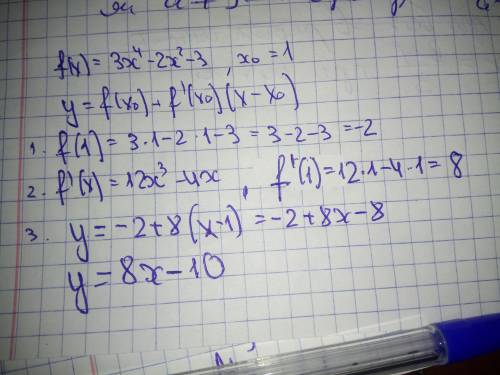 f(x) = 3x⁴ - 2x² - 3 , x₀ = 1
y = f(x₀) - f'(x₀)(x - x₀)
1. f(1) = 3·1 - 2·1 - 3 = 3 - 2 - 3 = -2
2. f'(x) = 12x³ - 4x , f'(1) = 12·1 - 4·1 = 8
3. y = -2 + 8(x - 1) = -2 + 8x - 8
y = 8x - 10